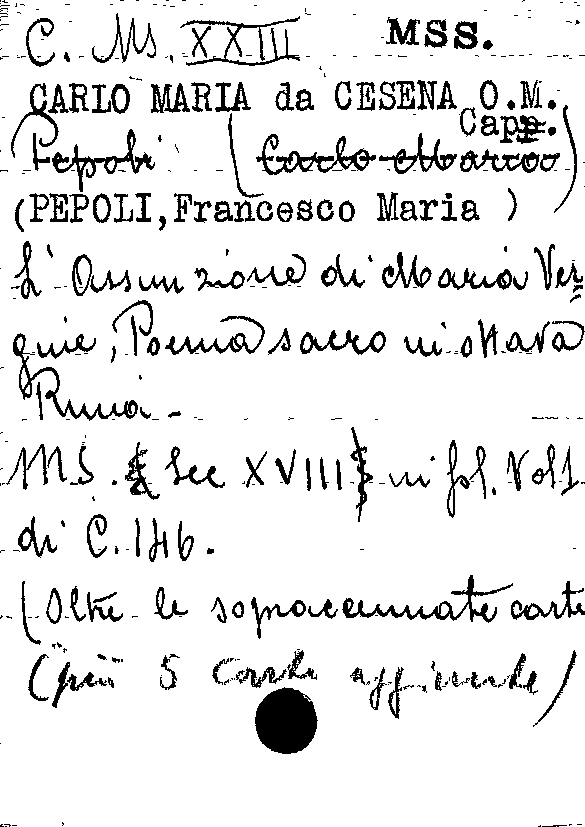 C. Ms. XXIII MSS.
CARLO MARIA da CESENA O.M.
Capp.
Pepoli (Carlo Maria)
(PEPOLI, Francesco Maria )
L'Assunzione di Maria Ver=
gine, Poema sacro in ottava
Rima.
MS. Sec XVIII in fol. Vol 1
di C. 146.
(Oltre le sopraccennate carte
(più 5 carte aggiunte)